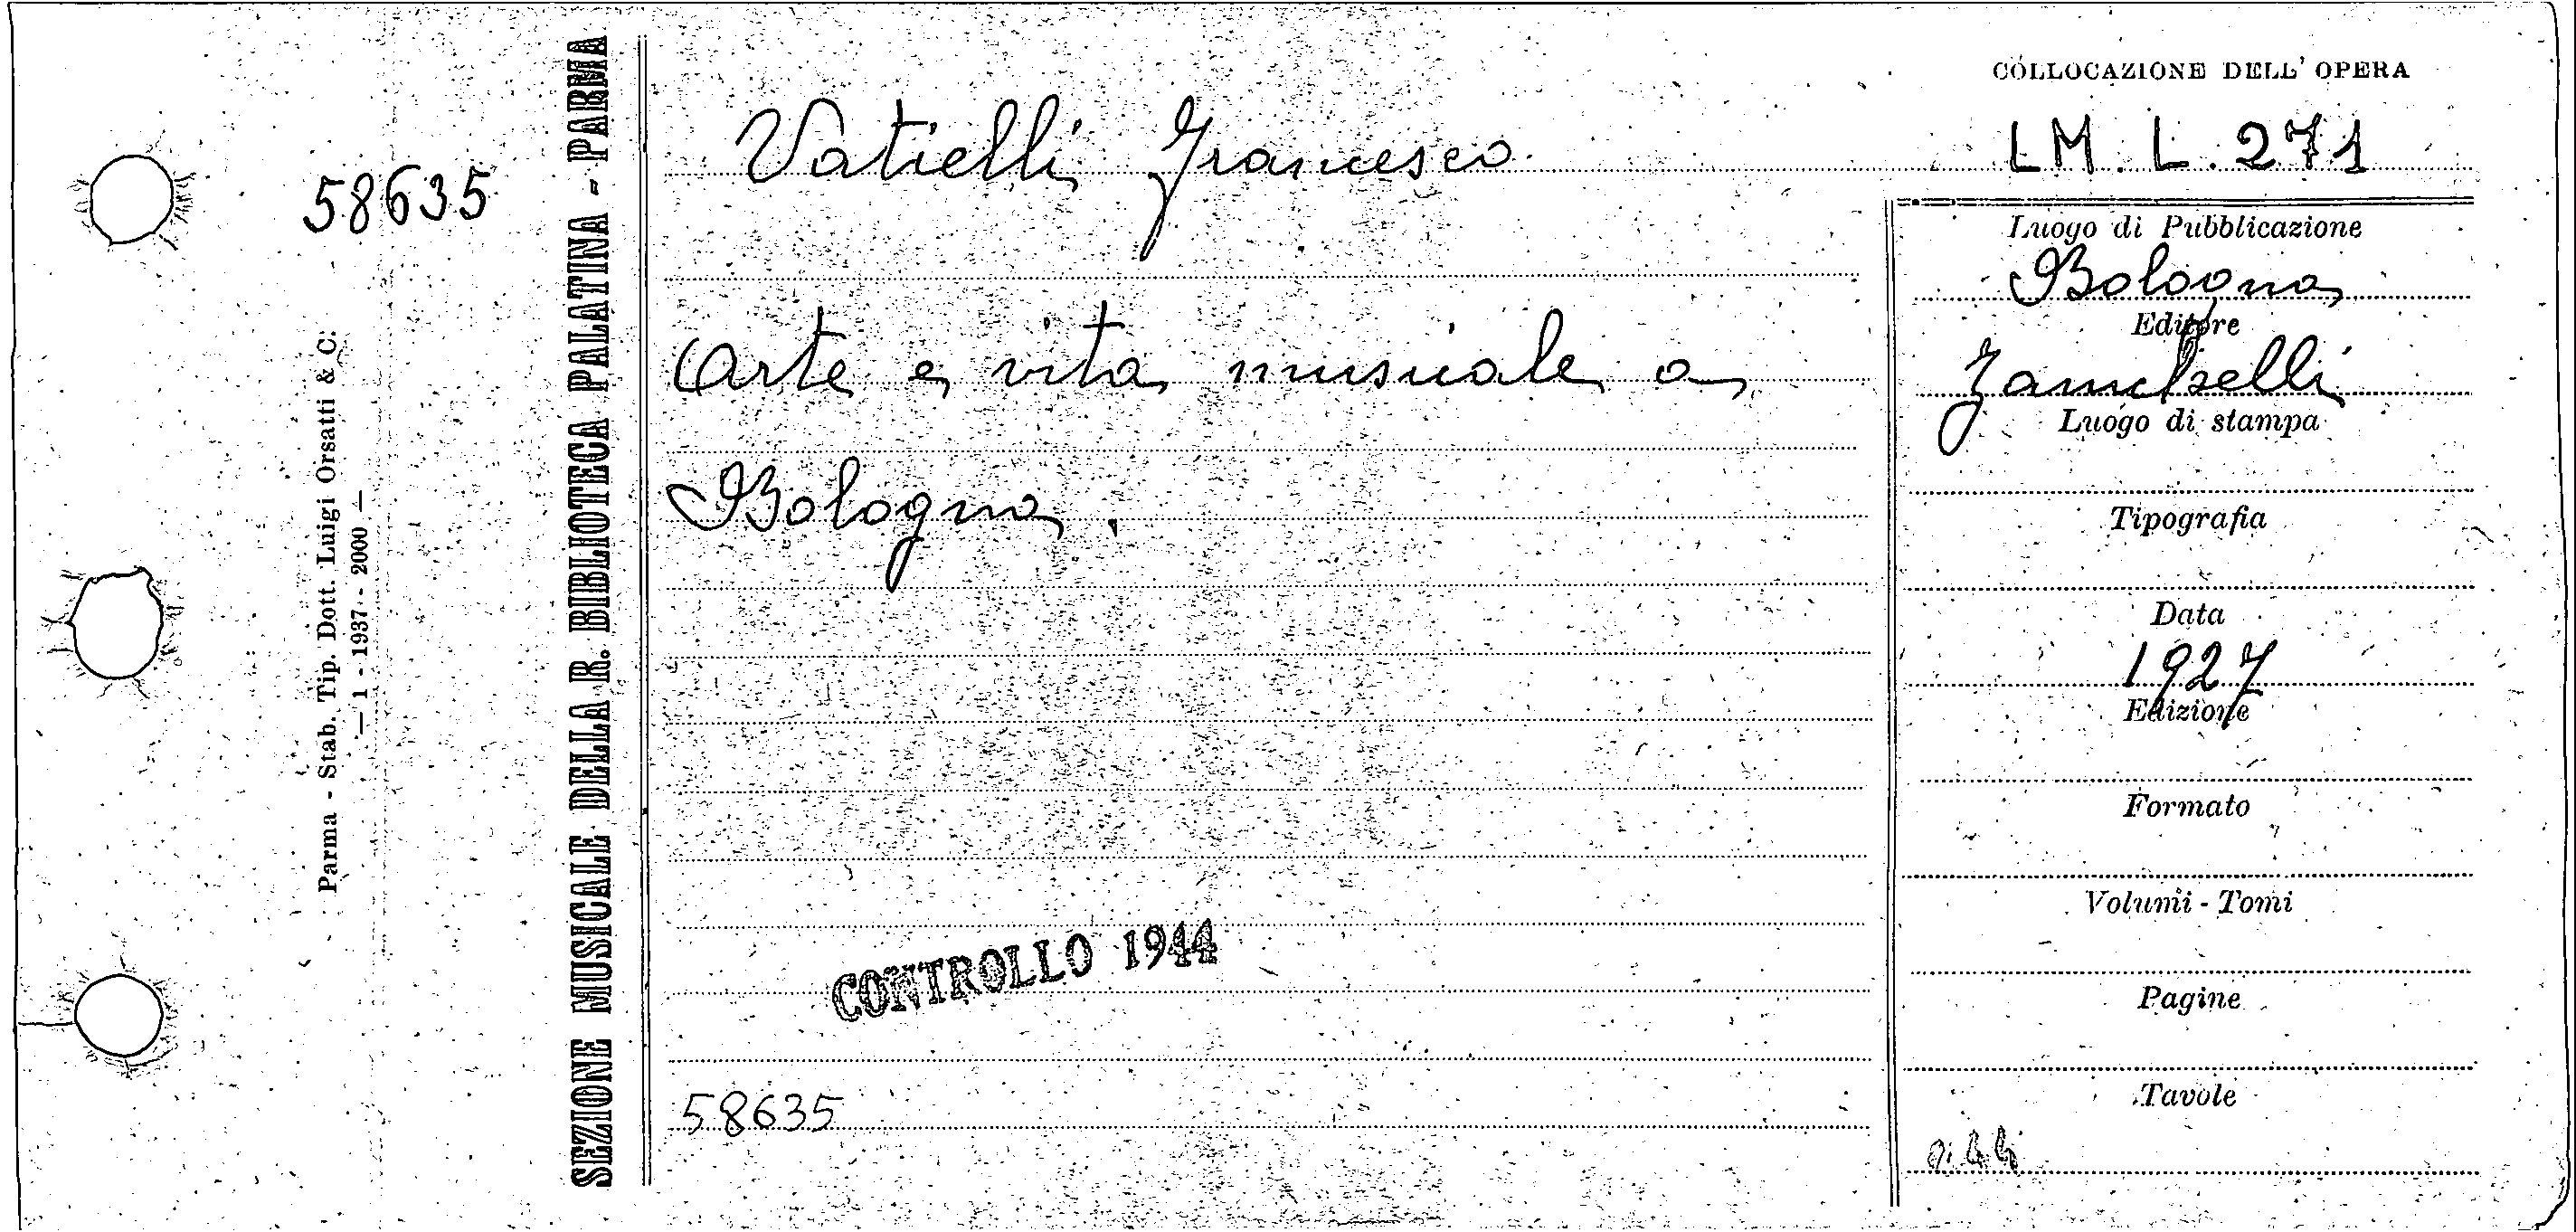 58635
Parma - Stab. Tip. Dott. Luigi Orsatti & C.
— 1 - 1937 - 2000 —
SEZIONE MUSICALE DELLA R. BIBLIOTECA PALATINA - PARMA
Vatielli Francesco
Arte e vita musicale a
Bologna.
CONTROLLO 1944
58635
COLLOCAZIONE DELL'OPERA
LM. L. 271
Luogo di Pubblicazione
Bologna
Editore
Zanichelli
Luogo di stampa
Tipografia
Data
1927
Edizione
Formato
Volumi - Tomi
Pagine
Tavole